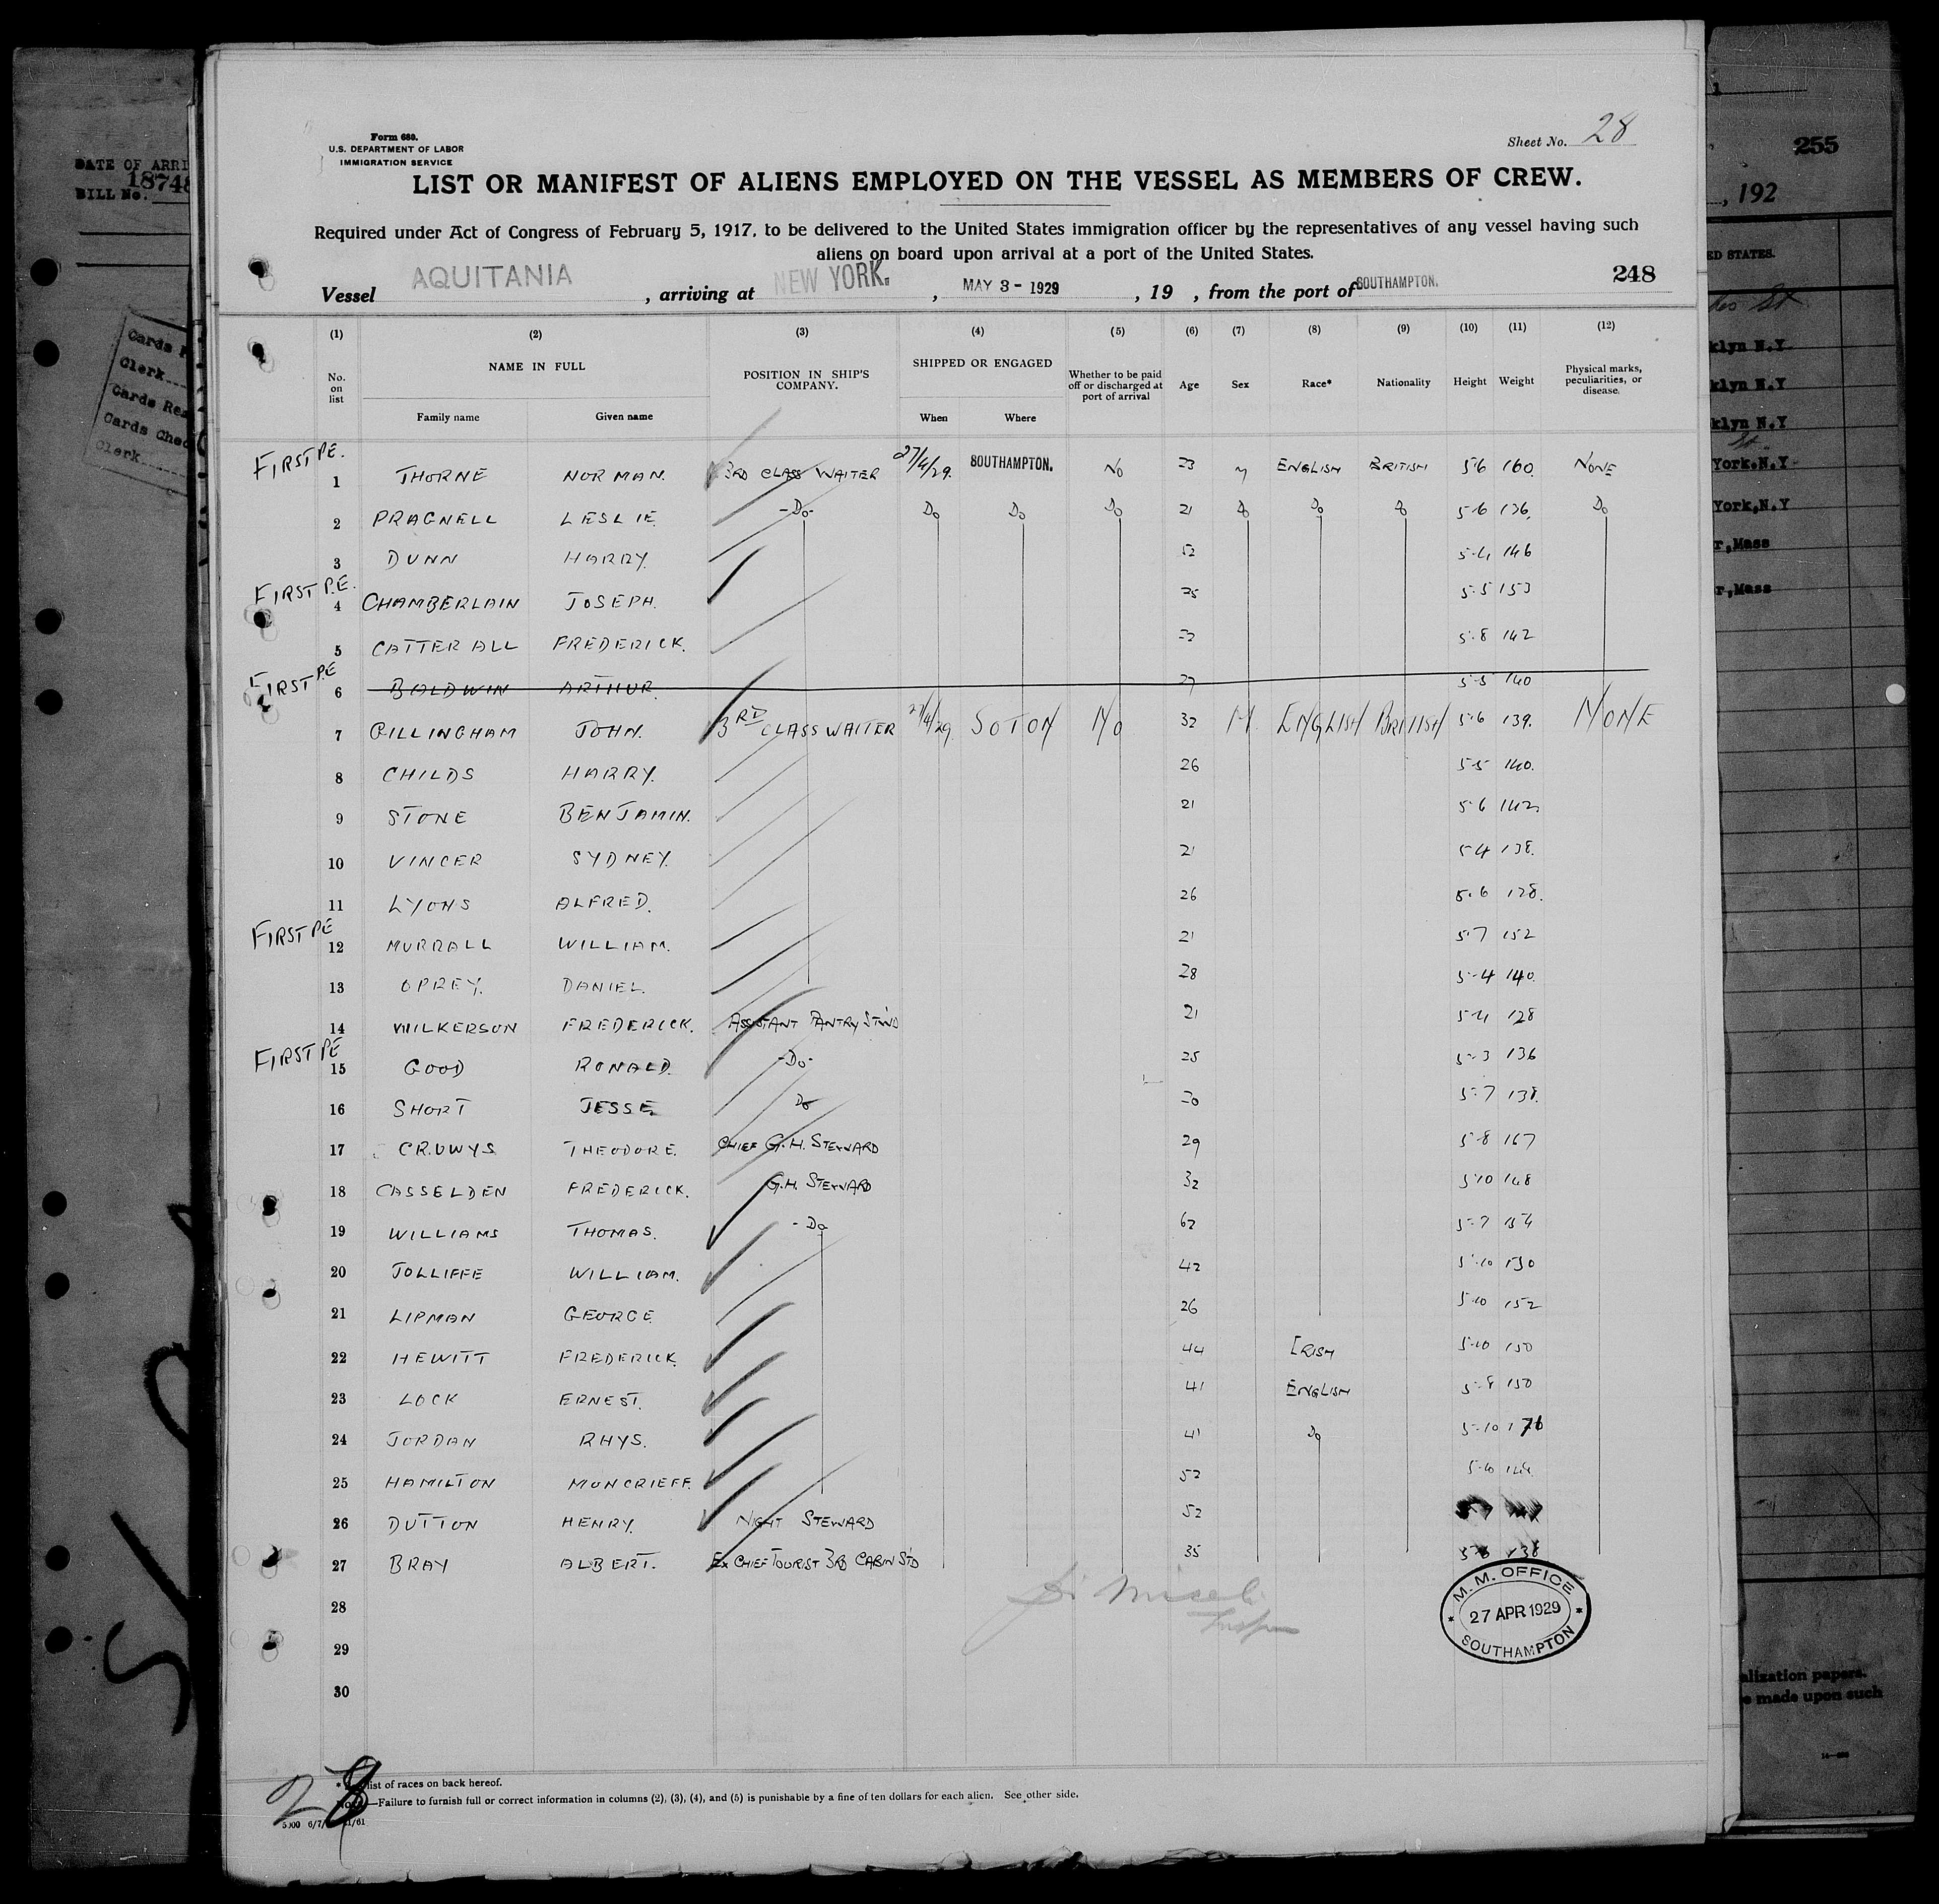 Form 680.
U.S. DEPARTMENT OF LABOR
IMMIGRATION SERVICE
Sheet No. 28
LIST OR MANIFEST OF ALIENS EMPLOYED ON THE VESSEL AS MEMBERS OF CREW.
Required under Act of Congress of February 5, 1917, to be delivered to the United States immigration officer by the representatives of any vessel having such
aliens on board upon arrival at a port of the United States.
248
Vessel AQUITANIA, arriving at NEW YORK., MAY 3 - 1929, 19 , from the port of SOUTHAMPTON.
(1) (2) (3) (4) (5) (6) (7) (8) (9) (10) (11) (12)
No. on list NAME IN FULL Family name Given name POSITION IN SHIP'S COMPANY. SHIPPED OR ENGAGED When Where Whether to be paid off or discharged at port of arrival Age Sex Race* Nationality Height Weight Physical marks, peculiarities, or disease.
FIRST P.E. 1 THORNE NORMAN. 3RD CLASS WAITER 27/4/29. SOUTHAMPTON. NO 23 M ENGLISH BRITISH 5-6 160. NONE
2 PRAGNELL LESLIE. -Do- Do Do Do 21 Do Do Do 5-6 136. Do
3 DUNN HARRY. 52 5-4 146
FIRST P.E. 4 CHAMBERLAIN JOSEPH. 5-5 153
5 CATTERALL FREDERICK. 5-8 142
FIRST P.E 6 BALDWIN ARTHUR. 5-5 140
7 GILLINGHAM JOHN. 3RD CLASS WAITER 27/4/29. SOTON NO 32 M. ENGLISH BRITISH 5-6 139. NONE
8 CHILDS HARRY. 26 5-5 140.
9 STONE BENJAMIN. 21 5-6 142
10 VINCER SYDNEY. 21 5-4 138.
11 LYONS ALFRED. 26 5-6 128.
FIRST PE 12 MURRALL WILLIAM. 21 5-7 152
13 OPREY. DANIEL. 28 5-4 140.
14 WILKERSON FREDERICK. ASSISTANT PANTRY STWD 21 5-4 128
FIRST PE 15 GOOD RONALD. -Do- 25 5-3 136
16 SHORT JESSE. Do 5-7 138.
17 CRUWYS THEODORE. CHIEF G.H. STEWARD 29 5-8 167
18 CASSELDEN FREDERICK. G.H. STEWARD 32 5-10 148
19 WILLIAMS THOMAS. -Do 62 5-7 154
20 JOLLIFFE WILLIAM. 42 5-10 150
21 LIPMAN GEORGE 26 5-10 152
22 HEWITT FREDERICK. 44 IRISH 5-10 150
23 LOCK ERNEST. 41 ENGLISH 5-8 150
24 JORDAN RHYS. 41 Do 5-10 176
25 HAMILTON MONCRIEFF. 52
26 DUTTON HENRY. NIGHT STEWARD 52
27 BRAY ALBERT. EX CHIEF TOURIST 3RD CABIN STD 35 138
28
29
30
M. M. OFFICE
* 27 APR 1929 *
SOUTHAMPTON
list of races on back hereof.
—Failure to furnish full or correct information in columns (2), (3), (4), and (5) is punishable by a fine of ten dollars for each alien. See other side.
28
DATE OF ARRI
18748
BILL No.
Clerk
Clerk
255
, 192
ED STATES.
klyn N.Y
klyn N.Y
klyn N.Y
York,N.Y
York,N.Y
r,Mass
r,Mass
alization papers.
e made upon such